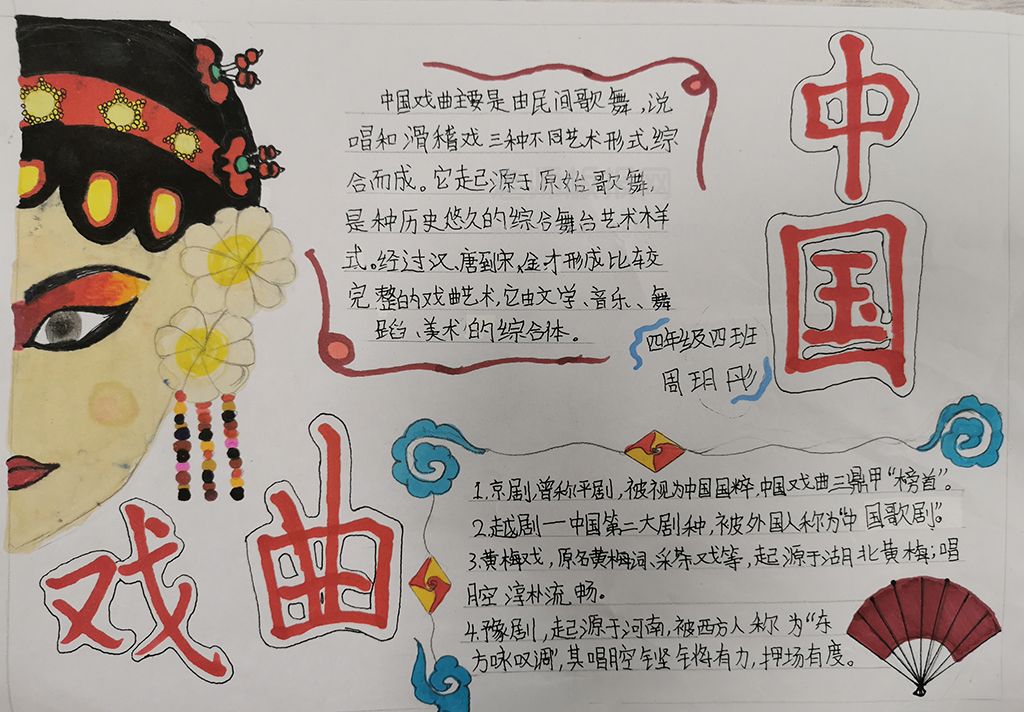 中国
中国戏曲主要是由民间歌舞,说
唱和滑稽戏三种不同艺术形式综
合而成。它起源于原始歌舞,
是种历史悠久的综合舞台艺术样
式。经过汉、唐到宋,金才形成比较
完整的戏曲艺术,它由文学、音乐、舞
蹈、美术的综合体。
四年级四班
周玥彤
戏曲
1.京剧,曾称平剧,被视为中国国粹,中国戏曲三鼎甲“榜首”。
2.越剧一中国第二大剧种,被外国人称为“中国歌剧”。
3.黄梅戏,原名黄梅词、采茶戏等,起源于湖北黄梅;唱
腔淳朴流畅。
4.豫剧,起源于河南,被西方人称为“东
方咏叹调”,其唱腔铿锵有力,抑场有度。